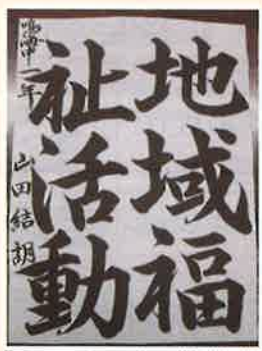 地域福
祉活動
鳴南中一年
山田結朗